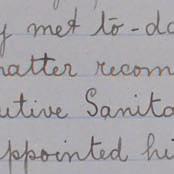 y met to-da
atter recom
utive Sanita
ppointed hi